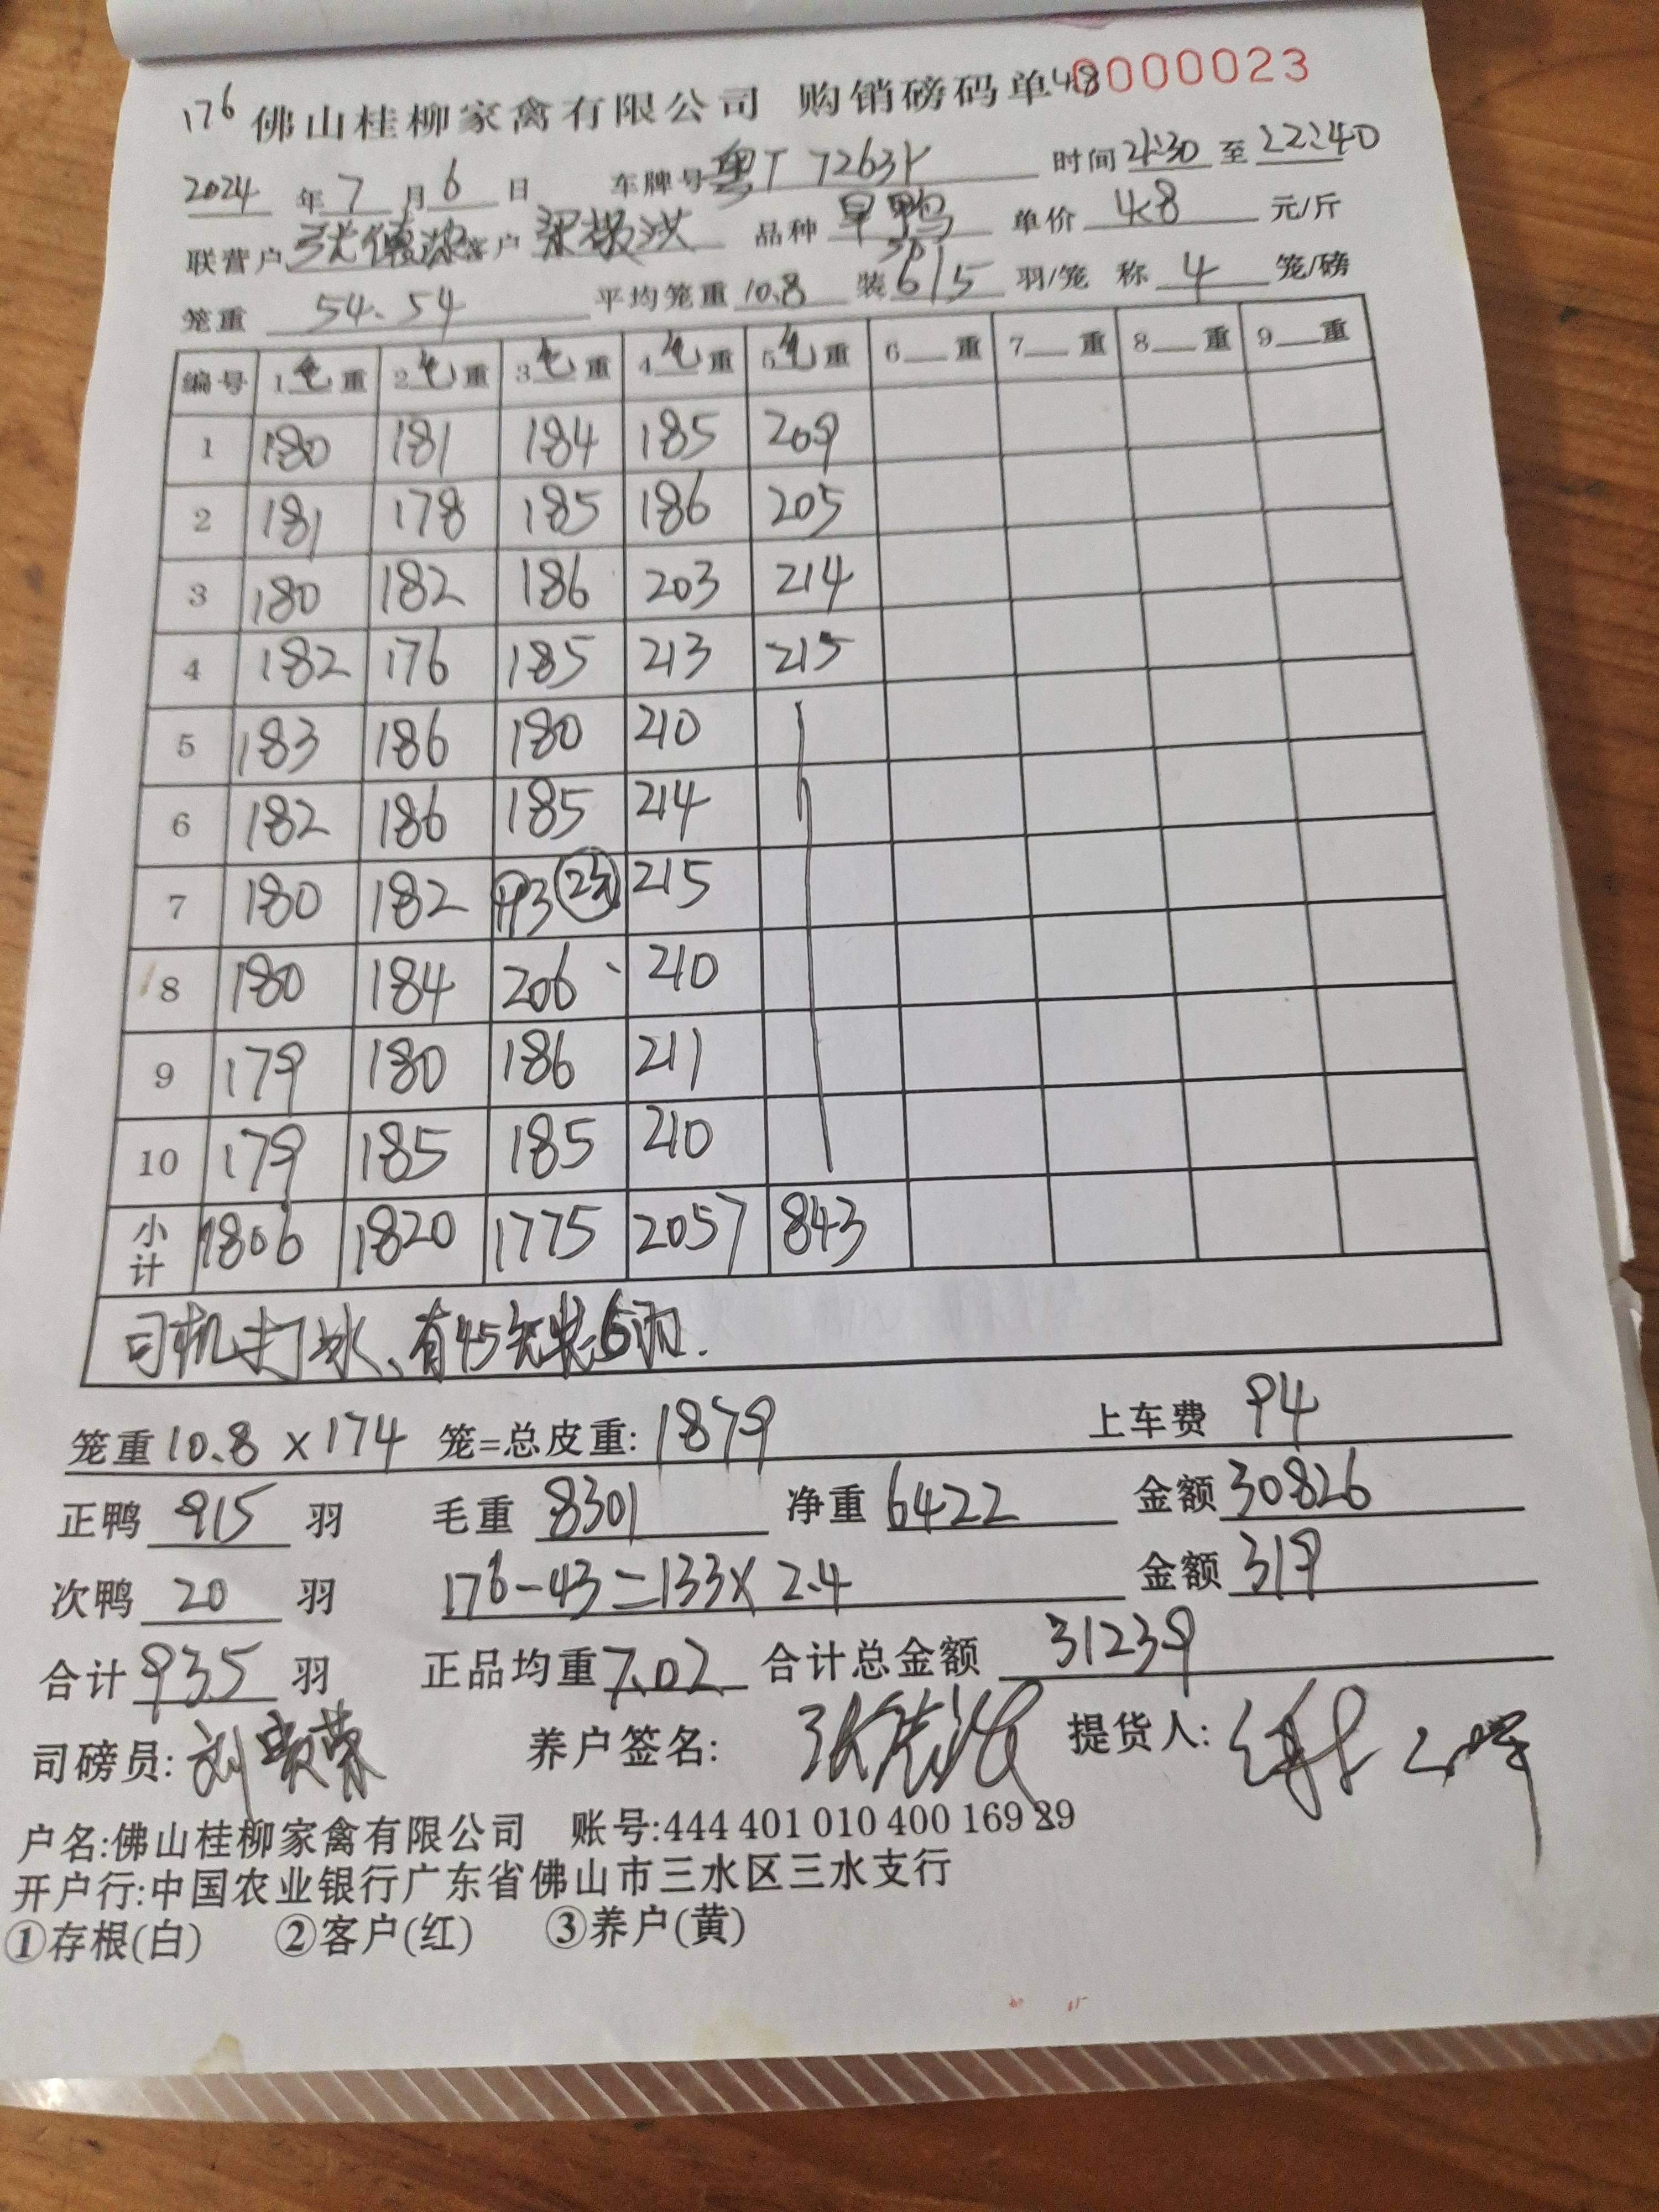 176 佛山桂柳家禽有限公司 购销磅码单 48 0000023
2024 年 7 月 6 日 车牌号 粤T 7263 时间 21:30 至 22:40
联营户 张 客户 梁 洪 品种 旱鸭 单价 4.8 元/斤
笼重 54.54 平均笼重 10.8 装 6/5 羽/笼 称 4 笼/磅
编号 1毛重 2毛重 3毛重 4毛重 5毛重 6 重 7 重 8 重 9 重
1 180 181 184 185 209
2 181 178 185 186 205
3 180 182 186 203 214
4 182 176 185 213 215
5 183 186 180 210
6 182 186 185 214
7 180 182 93 215
8 180 184 206 210
9 179 180 186 211
10 179 185 185 210
小计 1806 1820 1775 2057 843
司机打水、有45笼装6羽.
笼重 10.8 x 174 笼=总皮重: 1879 上车费 94
正鸭 915 羽 毛重 8301 净重 6422 金额 30826
次鸭 20 羽 176-43=133x2.4 金额 319
合计 935 羽 正品均重 7.02 合计总金额 31239
司磅员: 刘 荣 养户签名: 张 提货人:
户名:佛山桂柳家禽有限公司 账号:444 401 010 400 169 89
开户行:中国农业银行广东省佛山市三水区三水支行
①存根(白) ②客户(红) ③养户(黄)